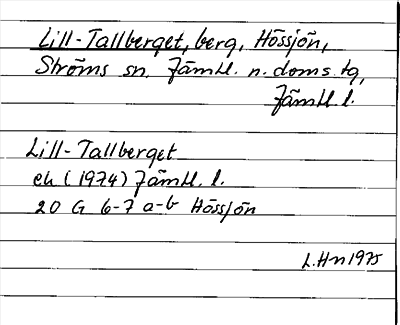 Lill-Tallberget, berg, Hössjön,
Ströms sn. Jämtl. n. doms. tg,
Jämtl. l.
Lill-Tallberget
ek (1974) Jämtl. l.
20 G 6-7 a-b Hössjön
L.Hn 1975